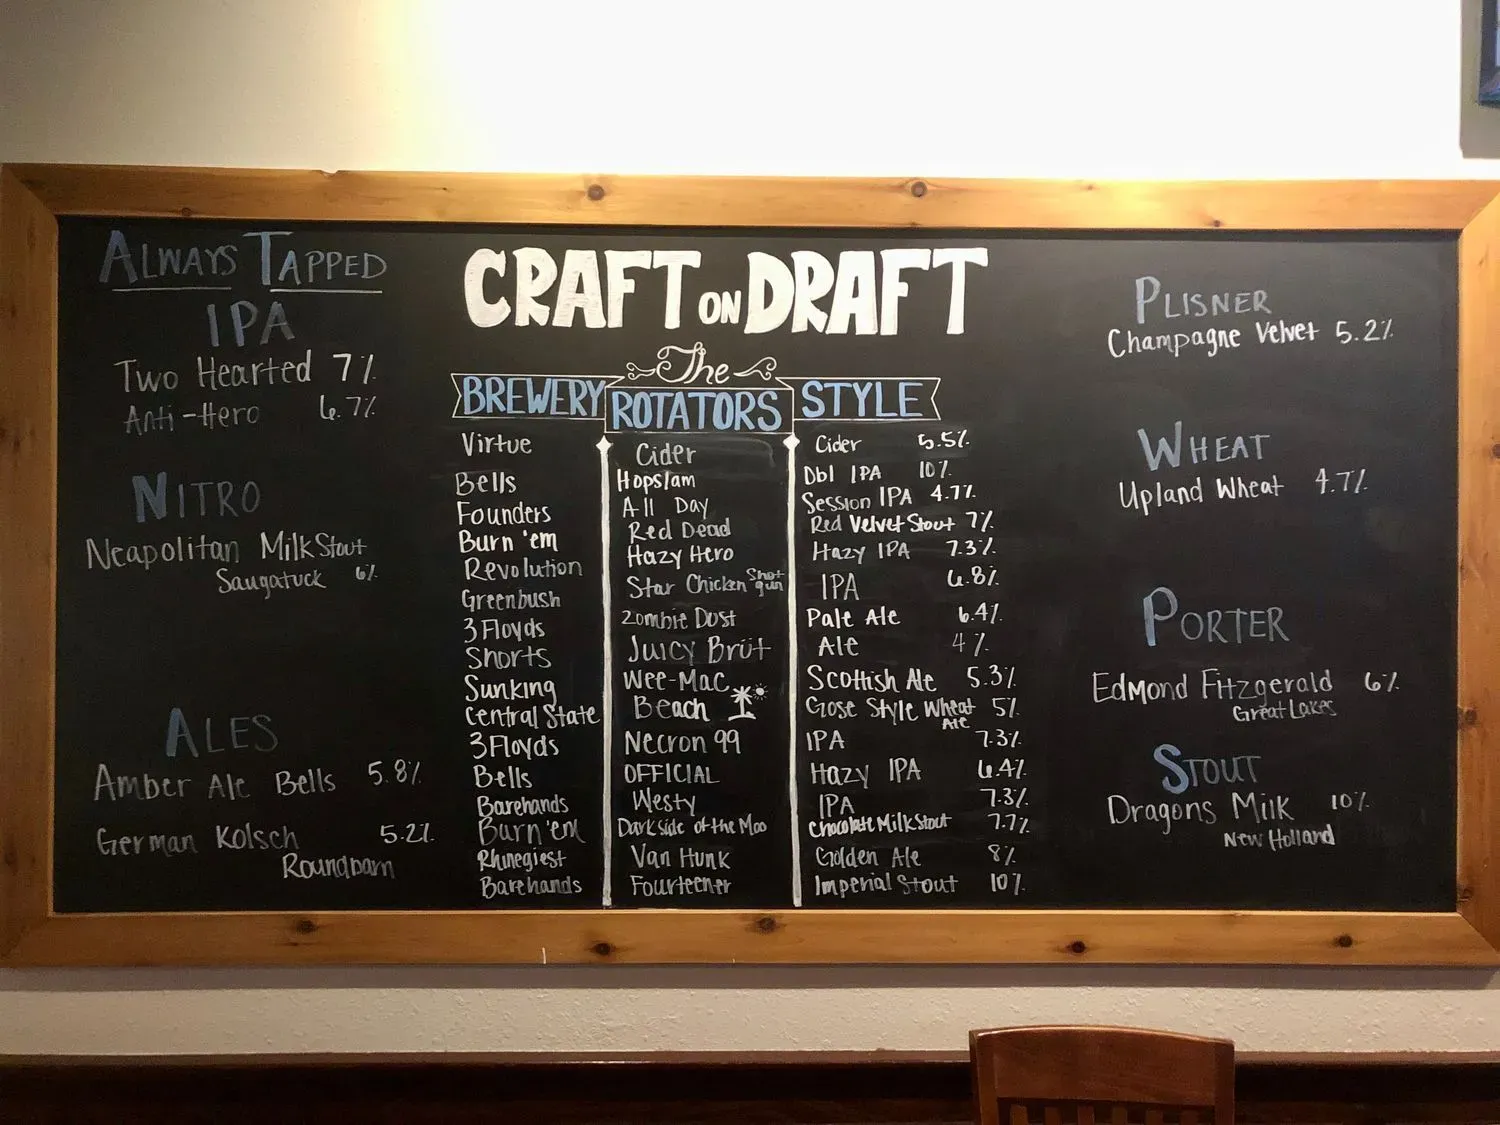 ALWAYS TAPPED
IPA
Two Hearted 7%
Anti-Hero 6.7%
NITRO
Neapolitan Milk Stout
Saugatuck 6%
ALES
Amber Ale Bells 5.8%
German Kolsch 5.2%
Roundbarn
CRAFT ON DRAFT
The
BREWERY ROTATORS STYLE
Virtue Cider Cider 5.5%
Bells Hopslam Dbl IPA 10%
Founders All Day Session IPA 4.7%
Burn 'em Red Dead Red Velvet Stout 7%
Revolution Hazy Hero Hazy IPA 7.3%
Greenbush Star Chicken Shot gun IPA 6.8%
3 Floyds Zombie Dust Pale Ale 6.4%
Shorts Juicy Brüt Ale 4%
Sunking Wee-Mac Scottish Ale 5.3%
Central State Beach Gose Style Wheat Ale 5%
3 Floyds Necron 99 IPA 7.3%
Bells OFFICIAL Hazy IPA 6.4%
Barehands Westy IPA 7.3%
Burn 'em Darkside of the Moo Chocolate Milk Stout 7.7%
Rhinegiest Van Hunk Golden Ale 8%
Barehands Fourteener Imperial Stout 10%
PLISNER
Champagne Velvet 5.2%
WHEAT
Upland Wheat 4.7%
PORTER
Edmond Fitzgerald 6%
Great Lakes
STOUT
Dragons Milk 10%
New Holland